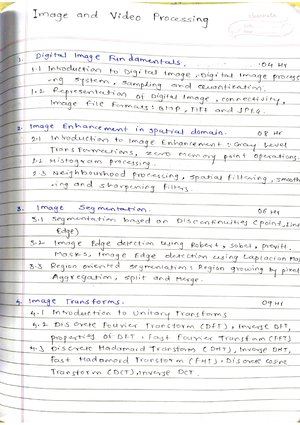 Image and Video Processing
classmate
1. Digital Image Fundamentals. 04 Hr
1.1 Introduction to Digital Image, Digital Image process
ing system, Sampling and Quantification.
1.2 Representation of Digital Image, connectivity,
Image File Formats: BMP, TIFF and JPEG.
2. Image Enhancement in spatial domain. 08 Hr
2.1 Introduction to Image Enhancement: Gray Level
Transformations, zero memory point operations.
2.2 Histogram processing.
2.3 Neighbourhood processing, spatial filtering, smooth
-ing and sharpening filters.
3. Image Segmentation. 06 Hr
3.1 Segmentation based on Discontinuities (point, Line
Edge)
3.2 Image Edge detection using Robert, sobel, prewitt
Masks, Image Edge detection using Laplacian Mas
3.3 Region oriented segmentation: Region growing by pixel
Aggregation, split and Merge.
4. Image Transforms. 09 Hr
4.1 Introduction to Unitary Transforms
4.2 Discrete Fourier Transform (DFT), Inverse DFT,
properties of DFT, Fast Fourier Transform (FFT)
4.3 Discrete Hadamard Transform (DHT), Inverse DHT,
Fast Hadamard Transform (FHT), Discrete Cosine
Transform (DCT), Inverse DCT.